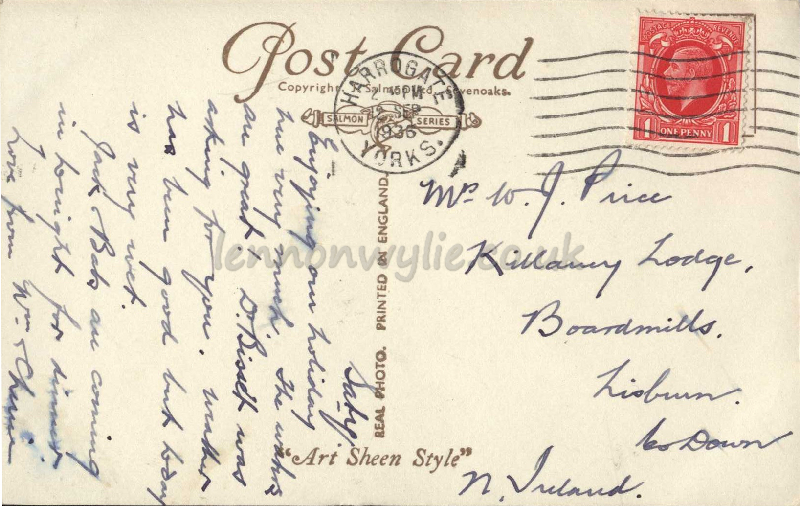 Post Card
Copyright Salmon Ltd. Sevenoaks.
SALMON SERIES
HARROGATE
SEP
1936
YORKS.
POSTAGE REVENUE
1 ONE PENNY 1
REAL PHOTO. PRINTED IN ENGLAND.
"Art Sheen Style"
lennonwylie.co.uk
Saty.
Enjoying our holiday
here very much. The waters
are great, D. Bisset was
asking for you. Weather
has been good but today
is very wet.
Jack & Babs are coming
in tonight for dinner
Love from Wm &
Mr W. J. Price
Killaney Lodge,
Boardmills.
Lisburn.
Co Down
N. Ireland.